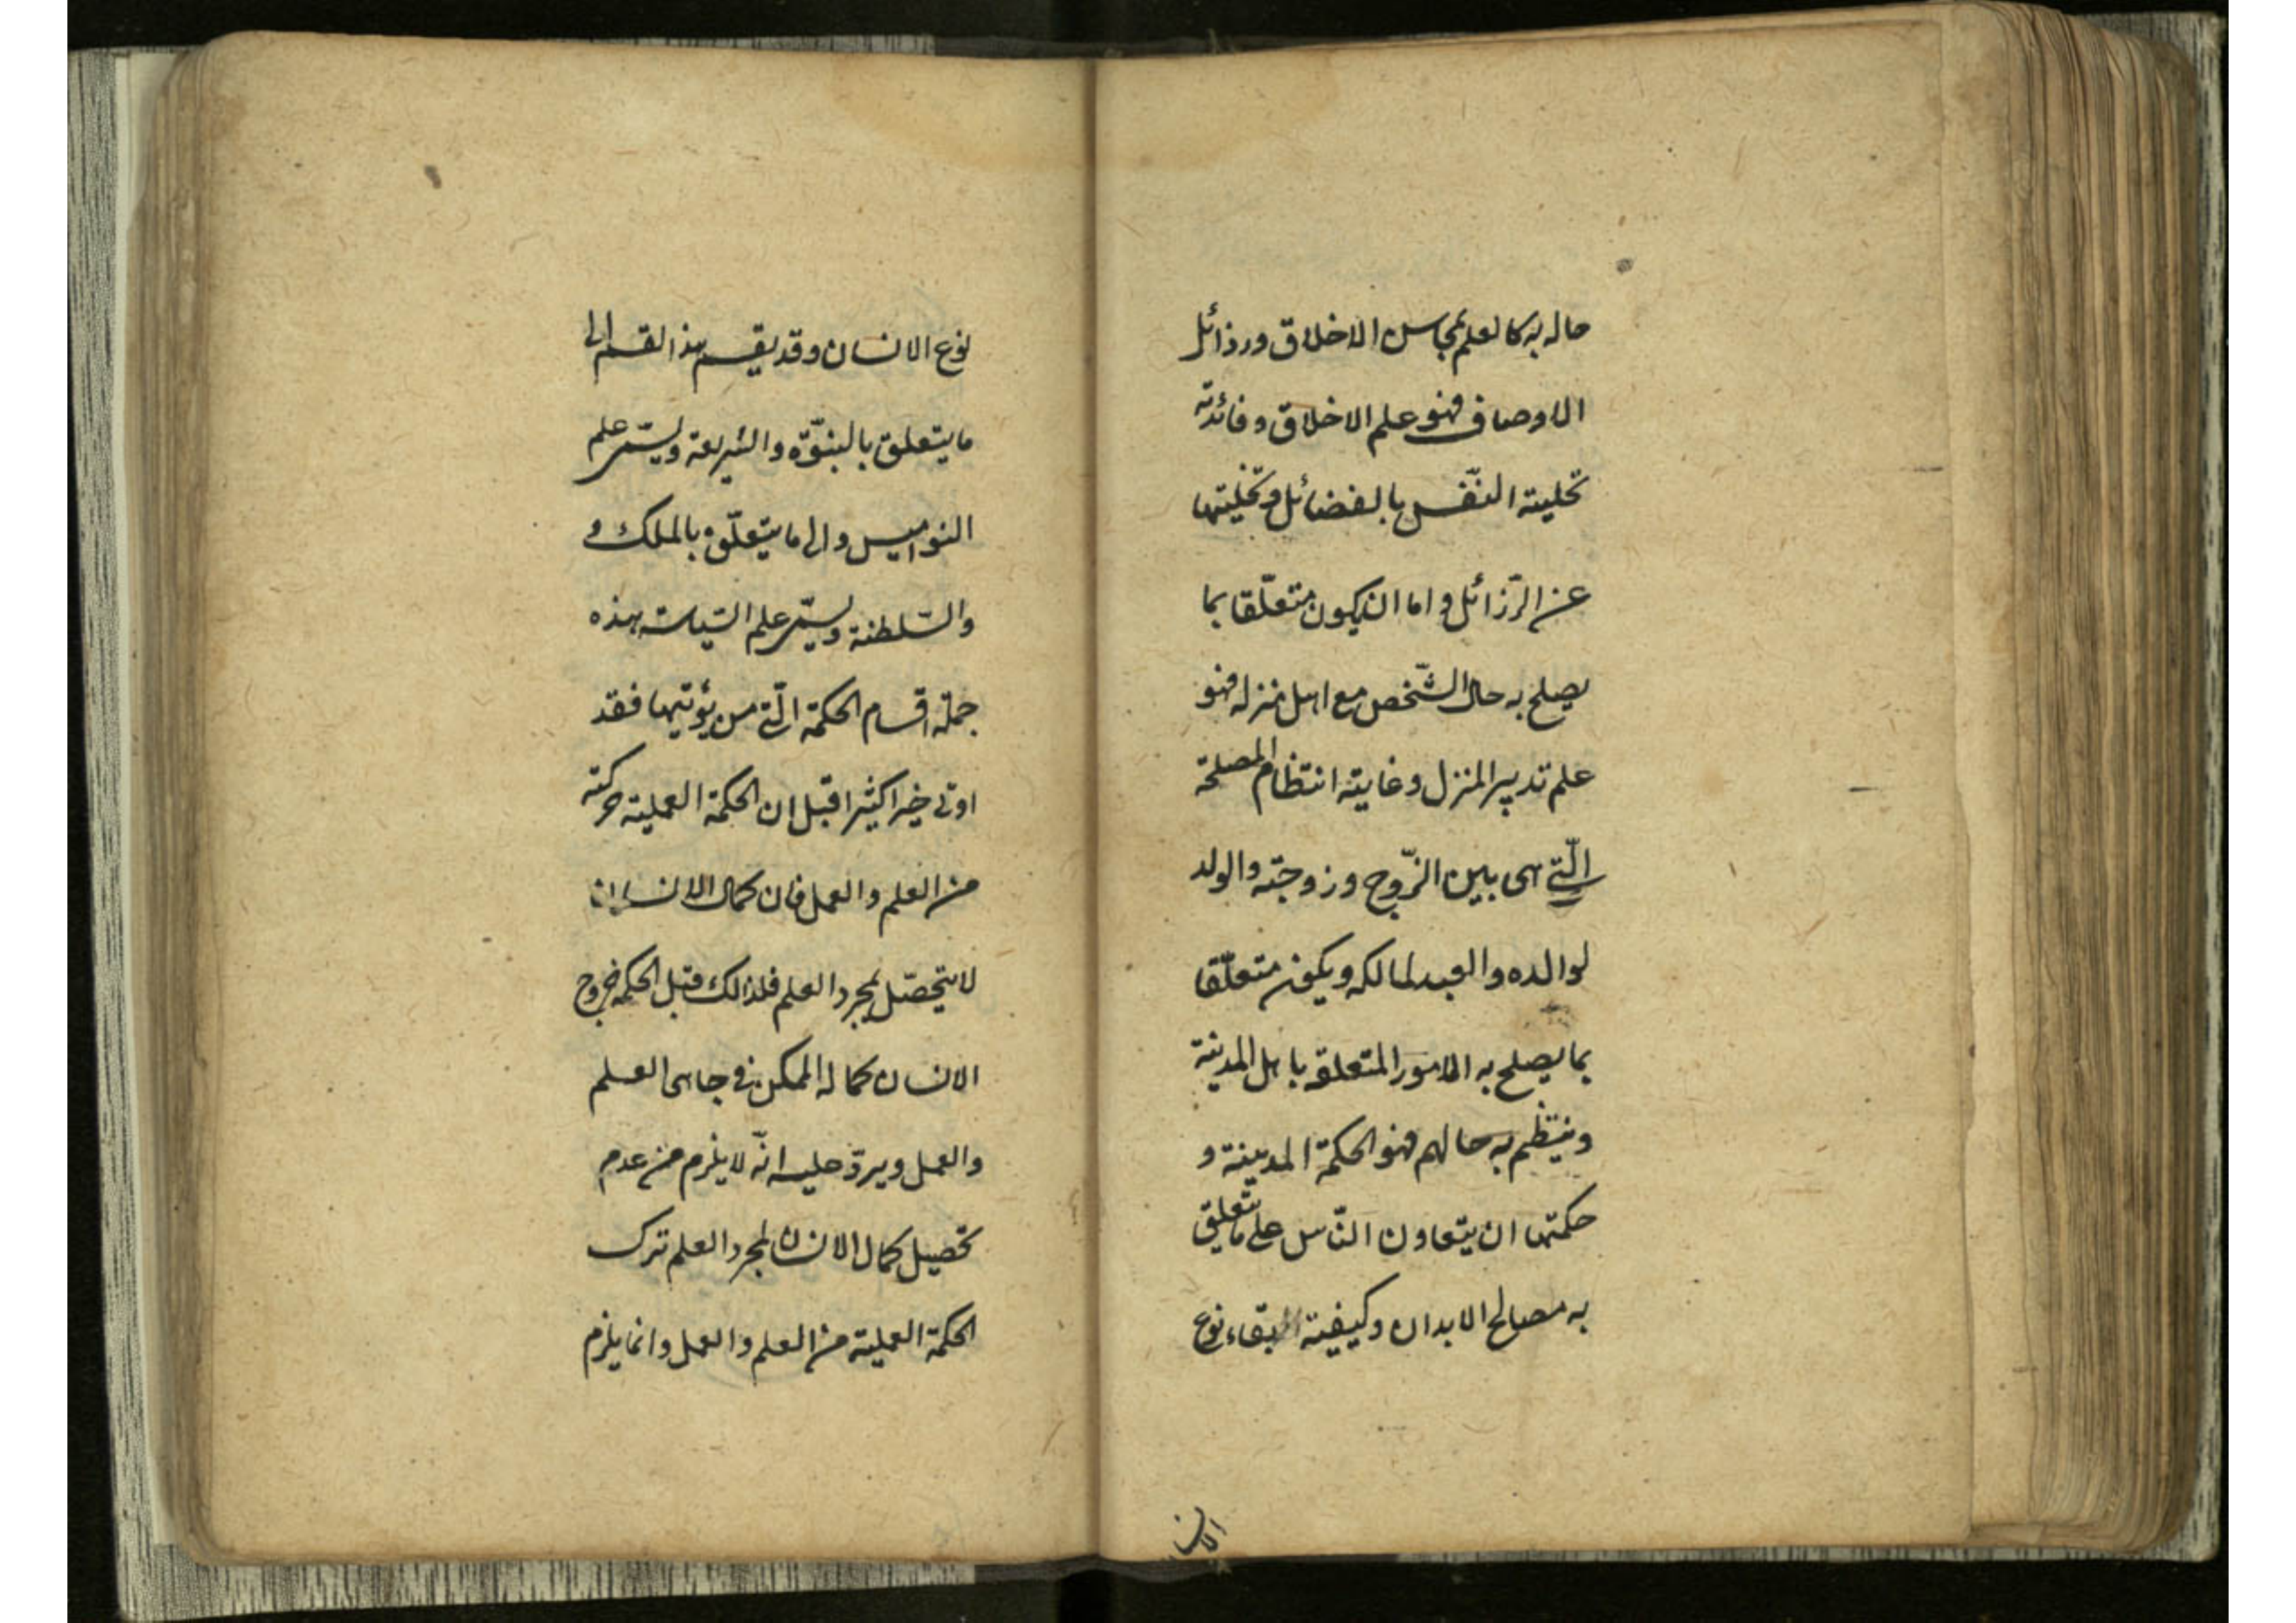 حاله به كالعلم بمحاسن الاخلاق ورذائل
الاوصاف فهو علم الاخلاق وفائدته
تحلية النّفس بالفضائل وتخليتها
عن الرّذائل واما ان يكون متعلّقا بما
يصلح به حال الشّخص مع اهل منزله فهو
علم تدبير المنزل وغايته انتظام المصلحة
الّتى هى بين الزّوج وزوجته والولد
لوالده والعبد لمالكه ويكون متعلّقا
بما يصلح به الامور المتعلقة باهل المدينة
وينتظم به حالهم فهو الحكمة المدينة و
حكمتها ان يتعاون النّاس على ما يتعلق
به مصالح الابدان وكيفية بقاء نوع
نوع الانسان وقد يقسم هذا القسم الى
ما يتعلق بالنبوّة والشريعة ويسمّى علم
النواميس والى ما يتعلّق بالملك و
والسّلطنة ويسمّى علم السّياسة هذه
جملة اقسام الحكمة الّتى من يؤتيها فقد
اوتى خيرا كثيرا قيل ان الحكمة العملية مركبة
من العلم والعمل فان كمال الانسان
لا يتحصّل بمجرد العلم فلذالك قيل الحكمة خروج
الانسان كماله الممكن فى جانبى العلم
والعمل ويردّ عليه انّه لا يلزم من عدم
تحصيل كمال الانسان بمجرد العلم تركب
الحكمة العملية من العلم والعمل وانما يلزم